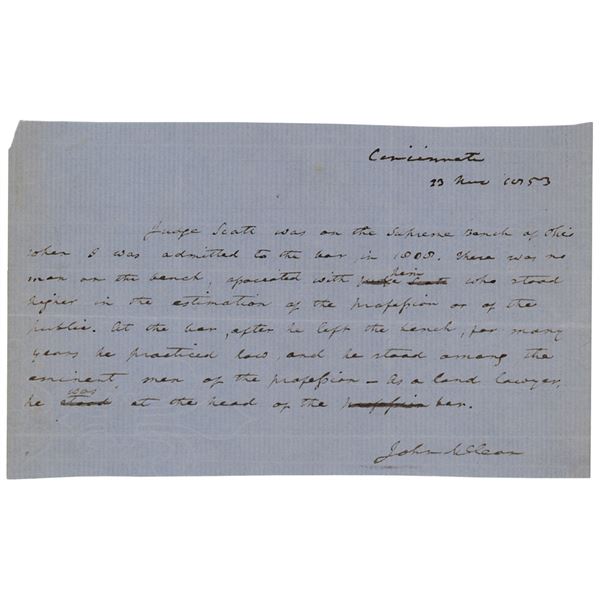 Cincinnati
23 Nov 1853
Judge Scott was on the Supreme Bench of Ohio
when I was admitted to the bar, in 1808. There was no
man on the bench, associated with him who stood
higher in the estimation of the profession or of the
public. At the bar, after he left the bench, for many
years he practiced law, and he stood among the
eminent men of the profession – As a land lawyer,
he was at the head of the bar.
John McLean